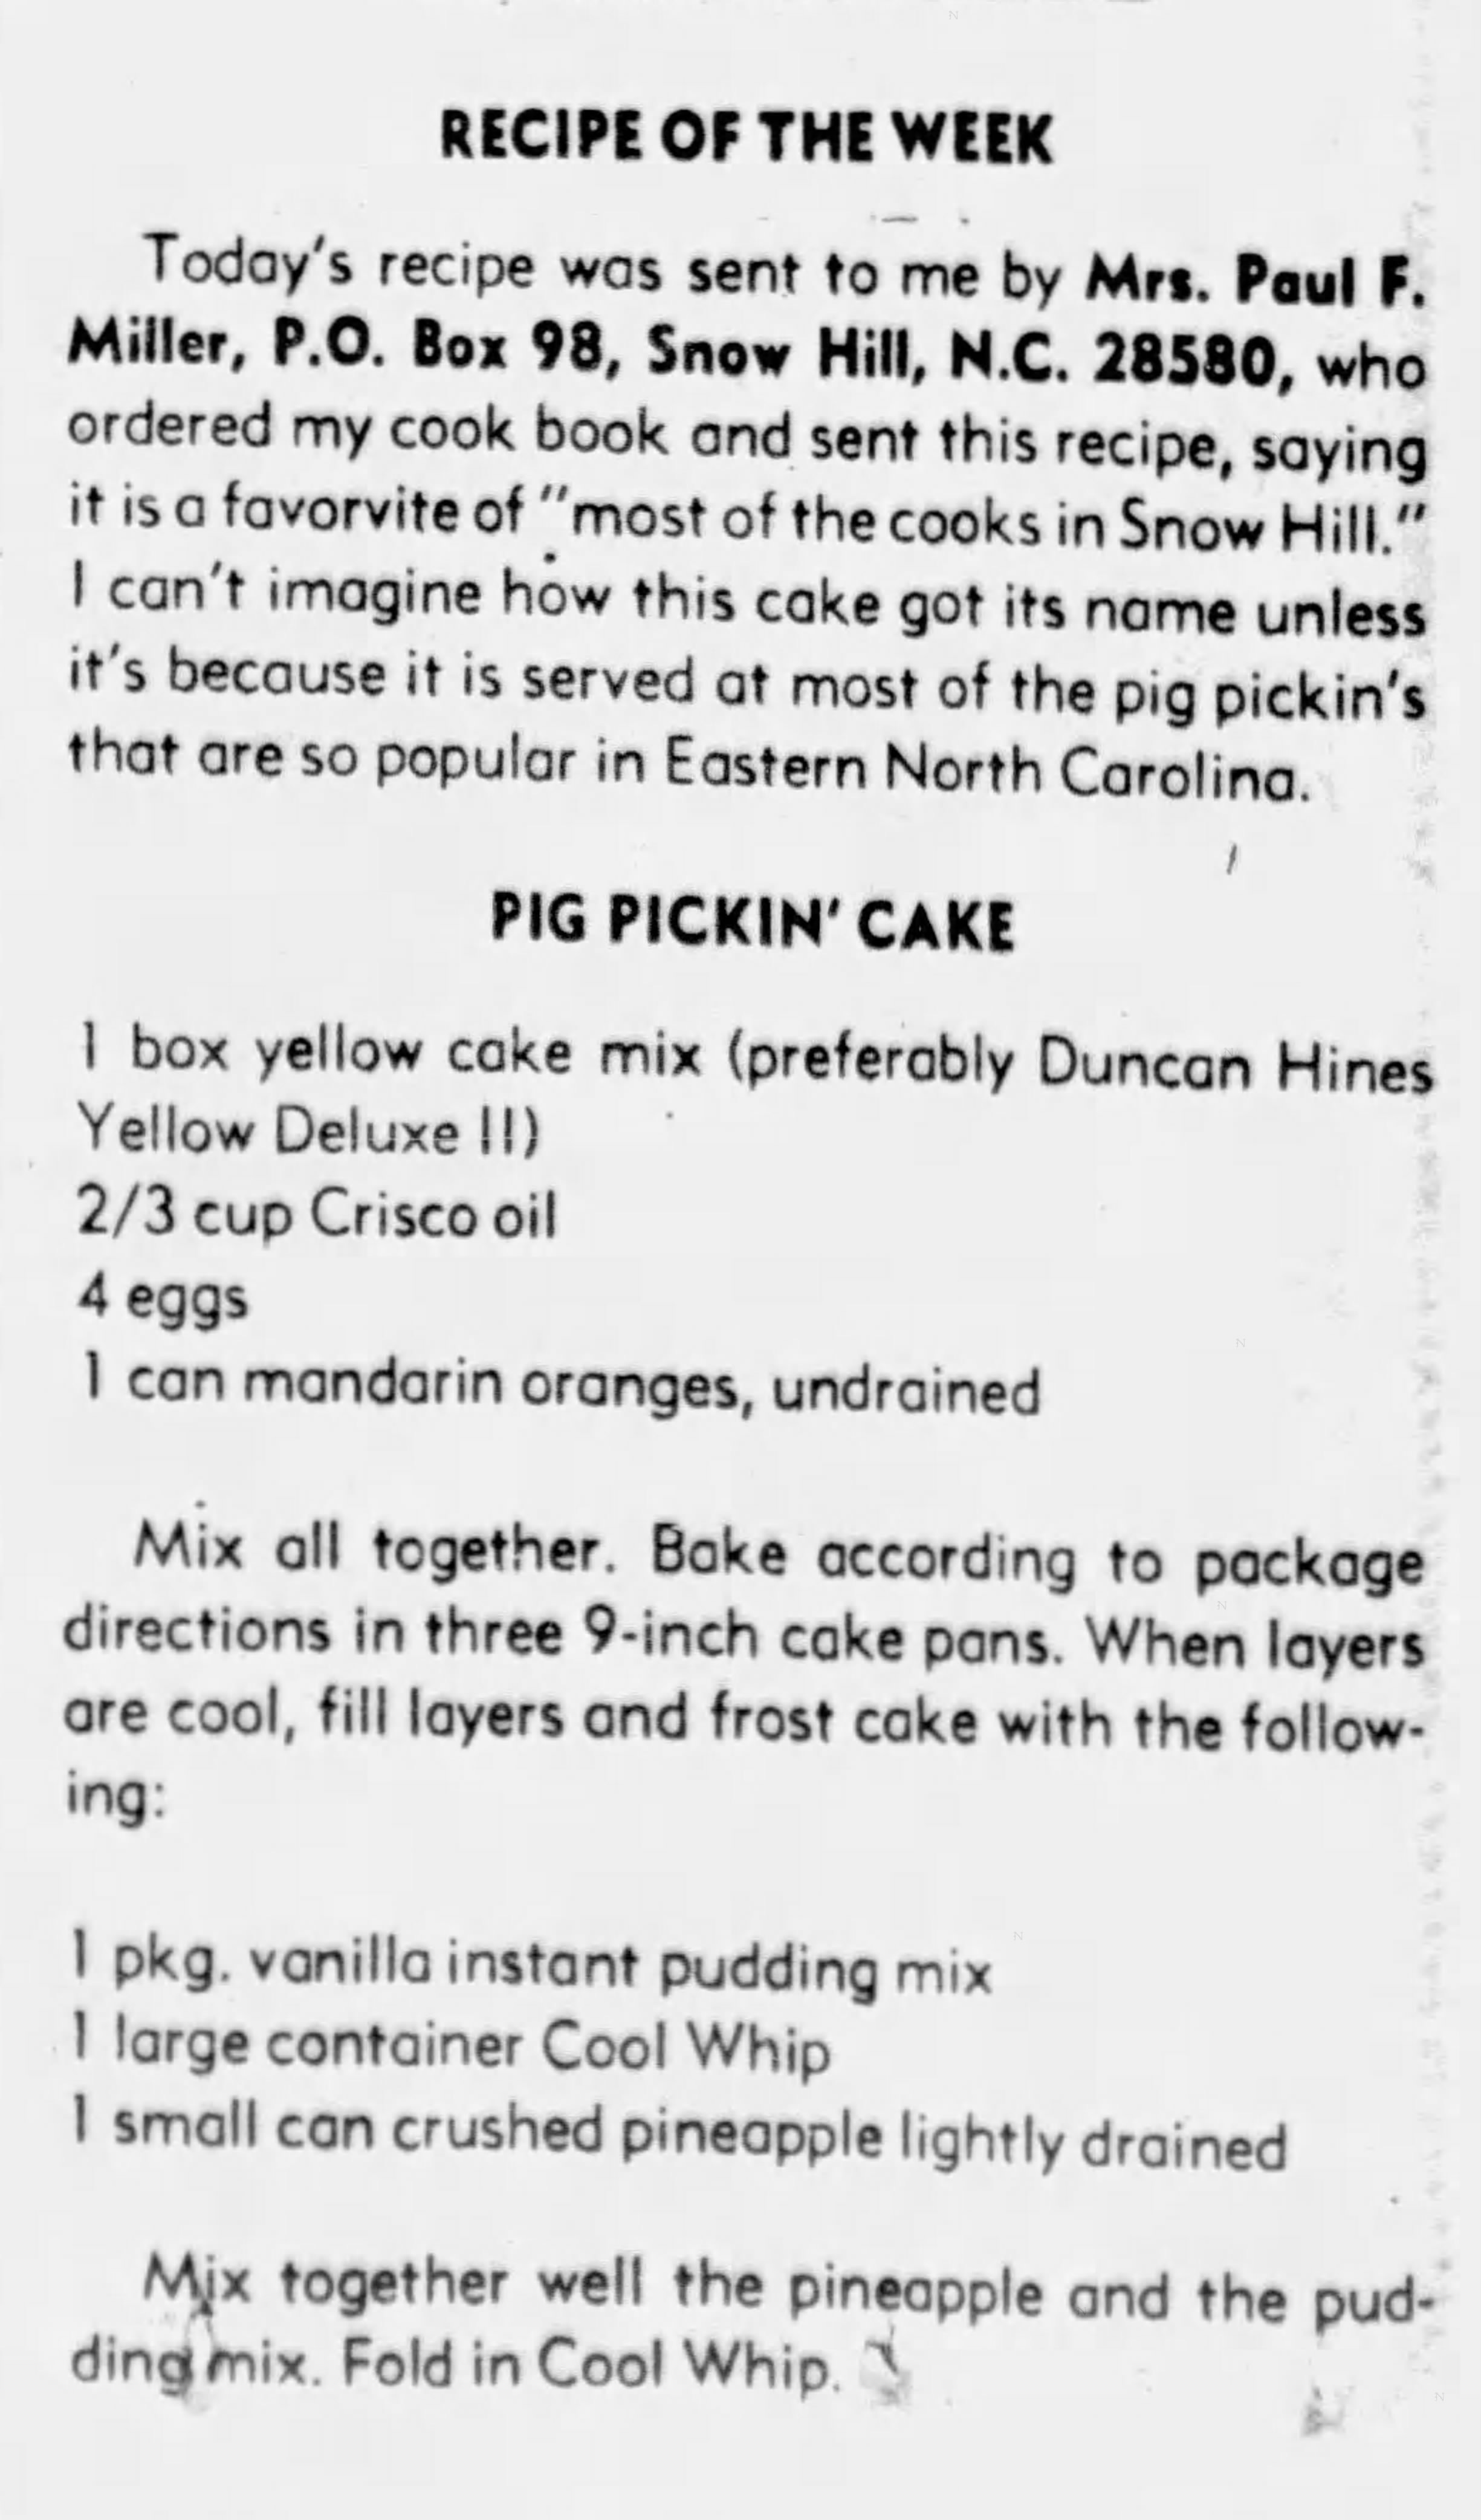 RECIPE OF THE WEEK
Today's recipe was sent to me by Mrs. Paul F.
Miller, P.O. Box 98, Snow Hill, N.C. 28580, who
ordered my cook book and sent this recipe, saying
it is a favorvite of "most of the cooks in Snow Hill."
I can't imagine how this cake got its name unless
it's because it is served at most of the pig pickin's
that are so popular in Eastern North Carolina.
PIG PICKIN' CAKE
1 box yellow cake mix (preferably Duncan Hines
Yellow Deluxe II)
2/3 cup Crisco oil
4 eggs
1 can mandarin oranges, undrained
Mix all together. Bake according to package
directions in three 9-inch cake pans. When layers
are cool, fill layers and frost cake with the follow-
ing:
1 pkg. vanilla instant pudding mix
1 large container Cool Whip
1 small can crushed pineapple lightly drained
Mix together well the pineapple and the pud-
ding mix. Fold in Cool Whip.